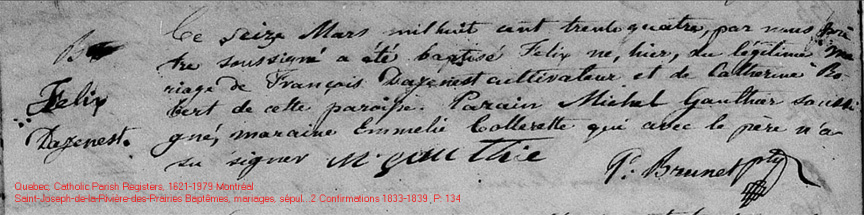 Le seize Mars mil huit cent trente quatre, par nous prê
B
tre soussigné a été baptisé Felix né, hier, du légitime ma
Felix
riage de François Dazenest cultivateur et de Catherine Ro
Dazenest.
bert de cette paroisse. Parain Michel Gauthier soussi
gné, maraine Emmelie Collerette qui avec le père n'a
su signer M gauthie
P. Brunet ptre
Quebec, Catholic Parish Registers, 1621-1979 Montréal
Saint-Joseph-de-la-Rivière-des-Prairies Baptêmes, mariages, sépul...2 Confirmations 1833-1839, P: 134